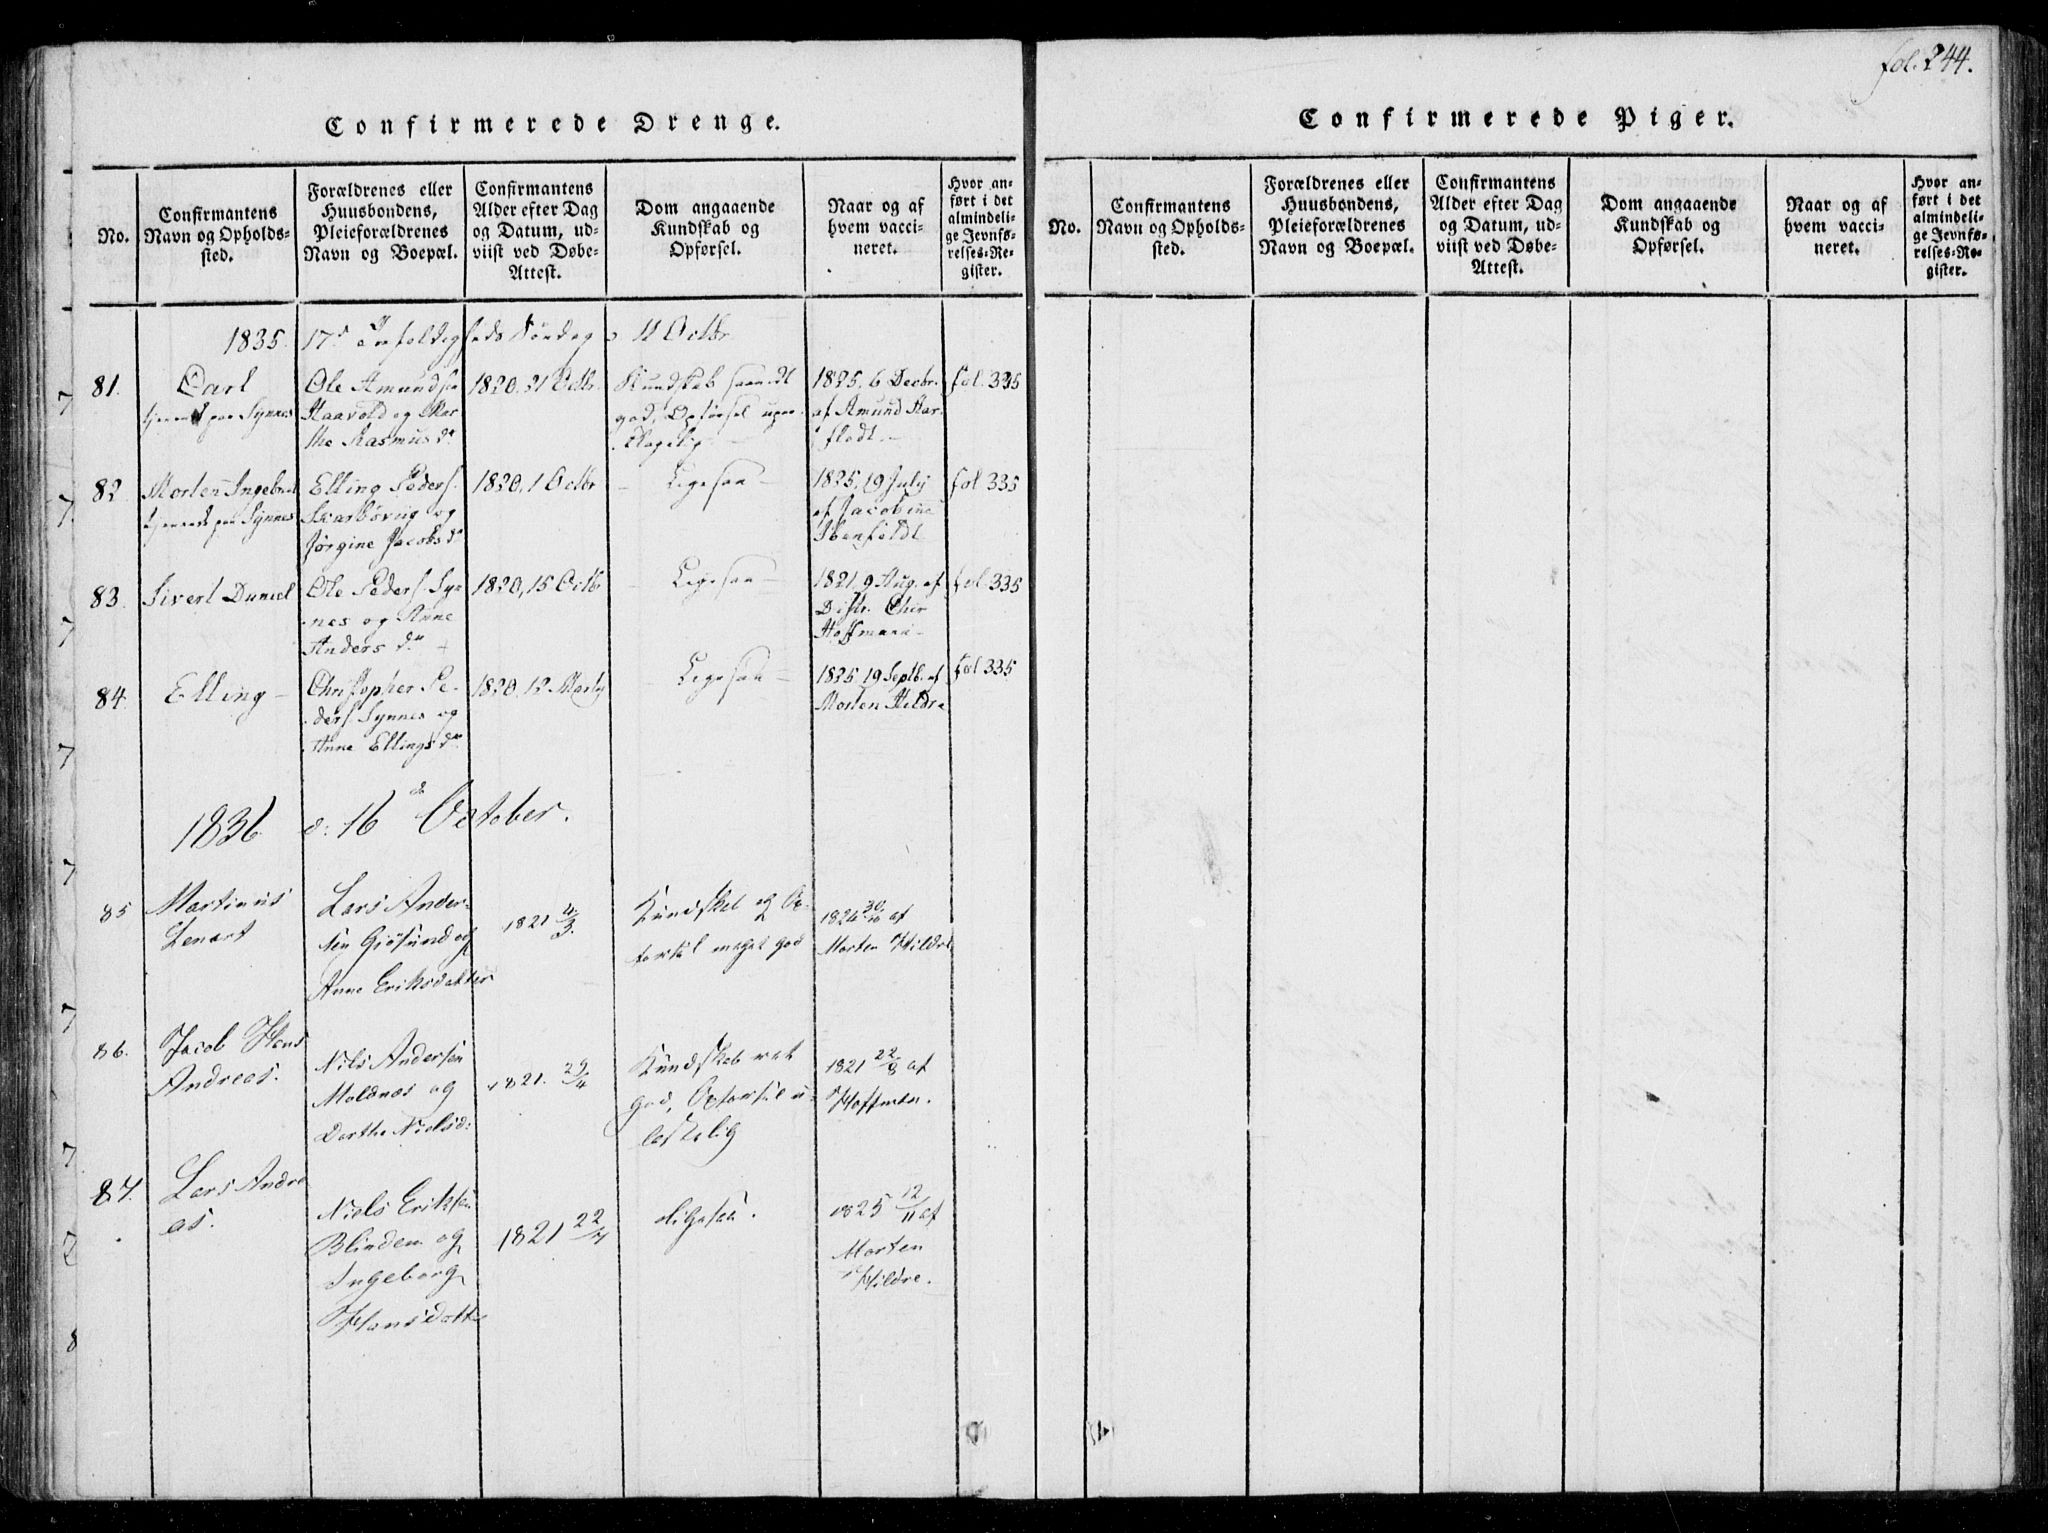 fol. 244.
Confirmerede Drenge.
No.
Confirmantens
Navn og Opholds-
sted.
Forældrenes eller
Huusbondens,
Pleieforældrenes
Navn og Boepæl.
Confirmantens
Alder efter Dag
og Datum, ud-
viist ved Døbe-
Attest.
Dom angaaende
Kundskab og
Opførsel.
Naar og af
hvem vacci-
neret.
Hvor an-
ført i det
almindeli-
ge Jevnfø-
relses-Re-
gister.
1835. 17d Søndag 11 Octbr.
81.
Carl
tjenende paa Synnes
Ole Amundsen
Haavold og Mar-
the Rasmusdr
1820. 31 Octbr.
Kundskab
god, Opførsel upaa-
klagelig.
1825. 6 Decbr.
af Amund Aar-
flodt.
fol. 335
82.
Morten Ingebret
tjenende paa Synnes
Elling Peders.
Skarbövig og
Jørgine Jacobsdr
1820, 1 Octbr
Ligesaa
1825, 19 July
af Jacobine
Ibenfeldt
fol 335
83.
Sivert Daniel
Ole Peders. Syn-
nes og Anne
Andersdr
1820, 15 Octb
Ligesaa
1821, 9 Aug. af
Distr. Chir
Hoffmann
fol. 335
84.
Elling
Christopher Pe-
ders. Synnes og
Anne Ellingsdr
1820. 12 Marty
Ligesaa
1825. 19 Septb. af
Morten Hildre
fol 335
1836 d: 16de October.
85
Martinus
Lenart
Lars Ander-
sen Giösund og
Anne Eriksdatter
1821 4/3.
Kundskab og Op-
førsel meget god
1826 30/10 af
Morten Hildre
86.
Jacob Hans
Andreas.
Nils Andersen
Moldnæs og
Dorthe Nielsd:
1821. 29/4
Kundskab ret
god, Opførsel u-
lastelig
1821 22/8 af
Hoffman.
87.
Lars Andre
as.
Niels Eriksen
Blindem og
Ingeborg
Hansdatter
1821 22/4
Ligesaa.
1825 12/11 af
Morten
Hildre.
Confirmerede Piger.
No.
Confirmantens
Navn og Opholds-
sted.
Forældrenes eller
Huusbondens,
Pleieforældrenes
Navn og Boepæl.
Confirmantens
Alder efter Dag
og Datum, ud-
viist ved Døbe-
Attest.
Dom angaaende
Kundskab og
Opførsel.
Naar og af
hvem vacci-
neret.
Hvor an-
ført i det
almindeli-
ge Jevnfø-
relses-Re-
gister.